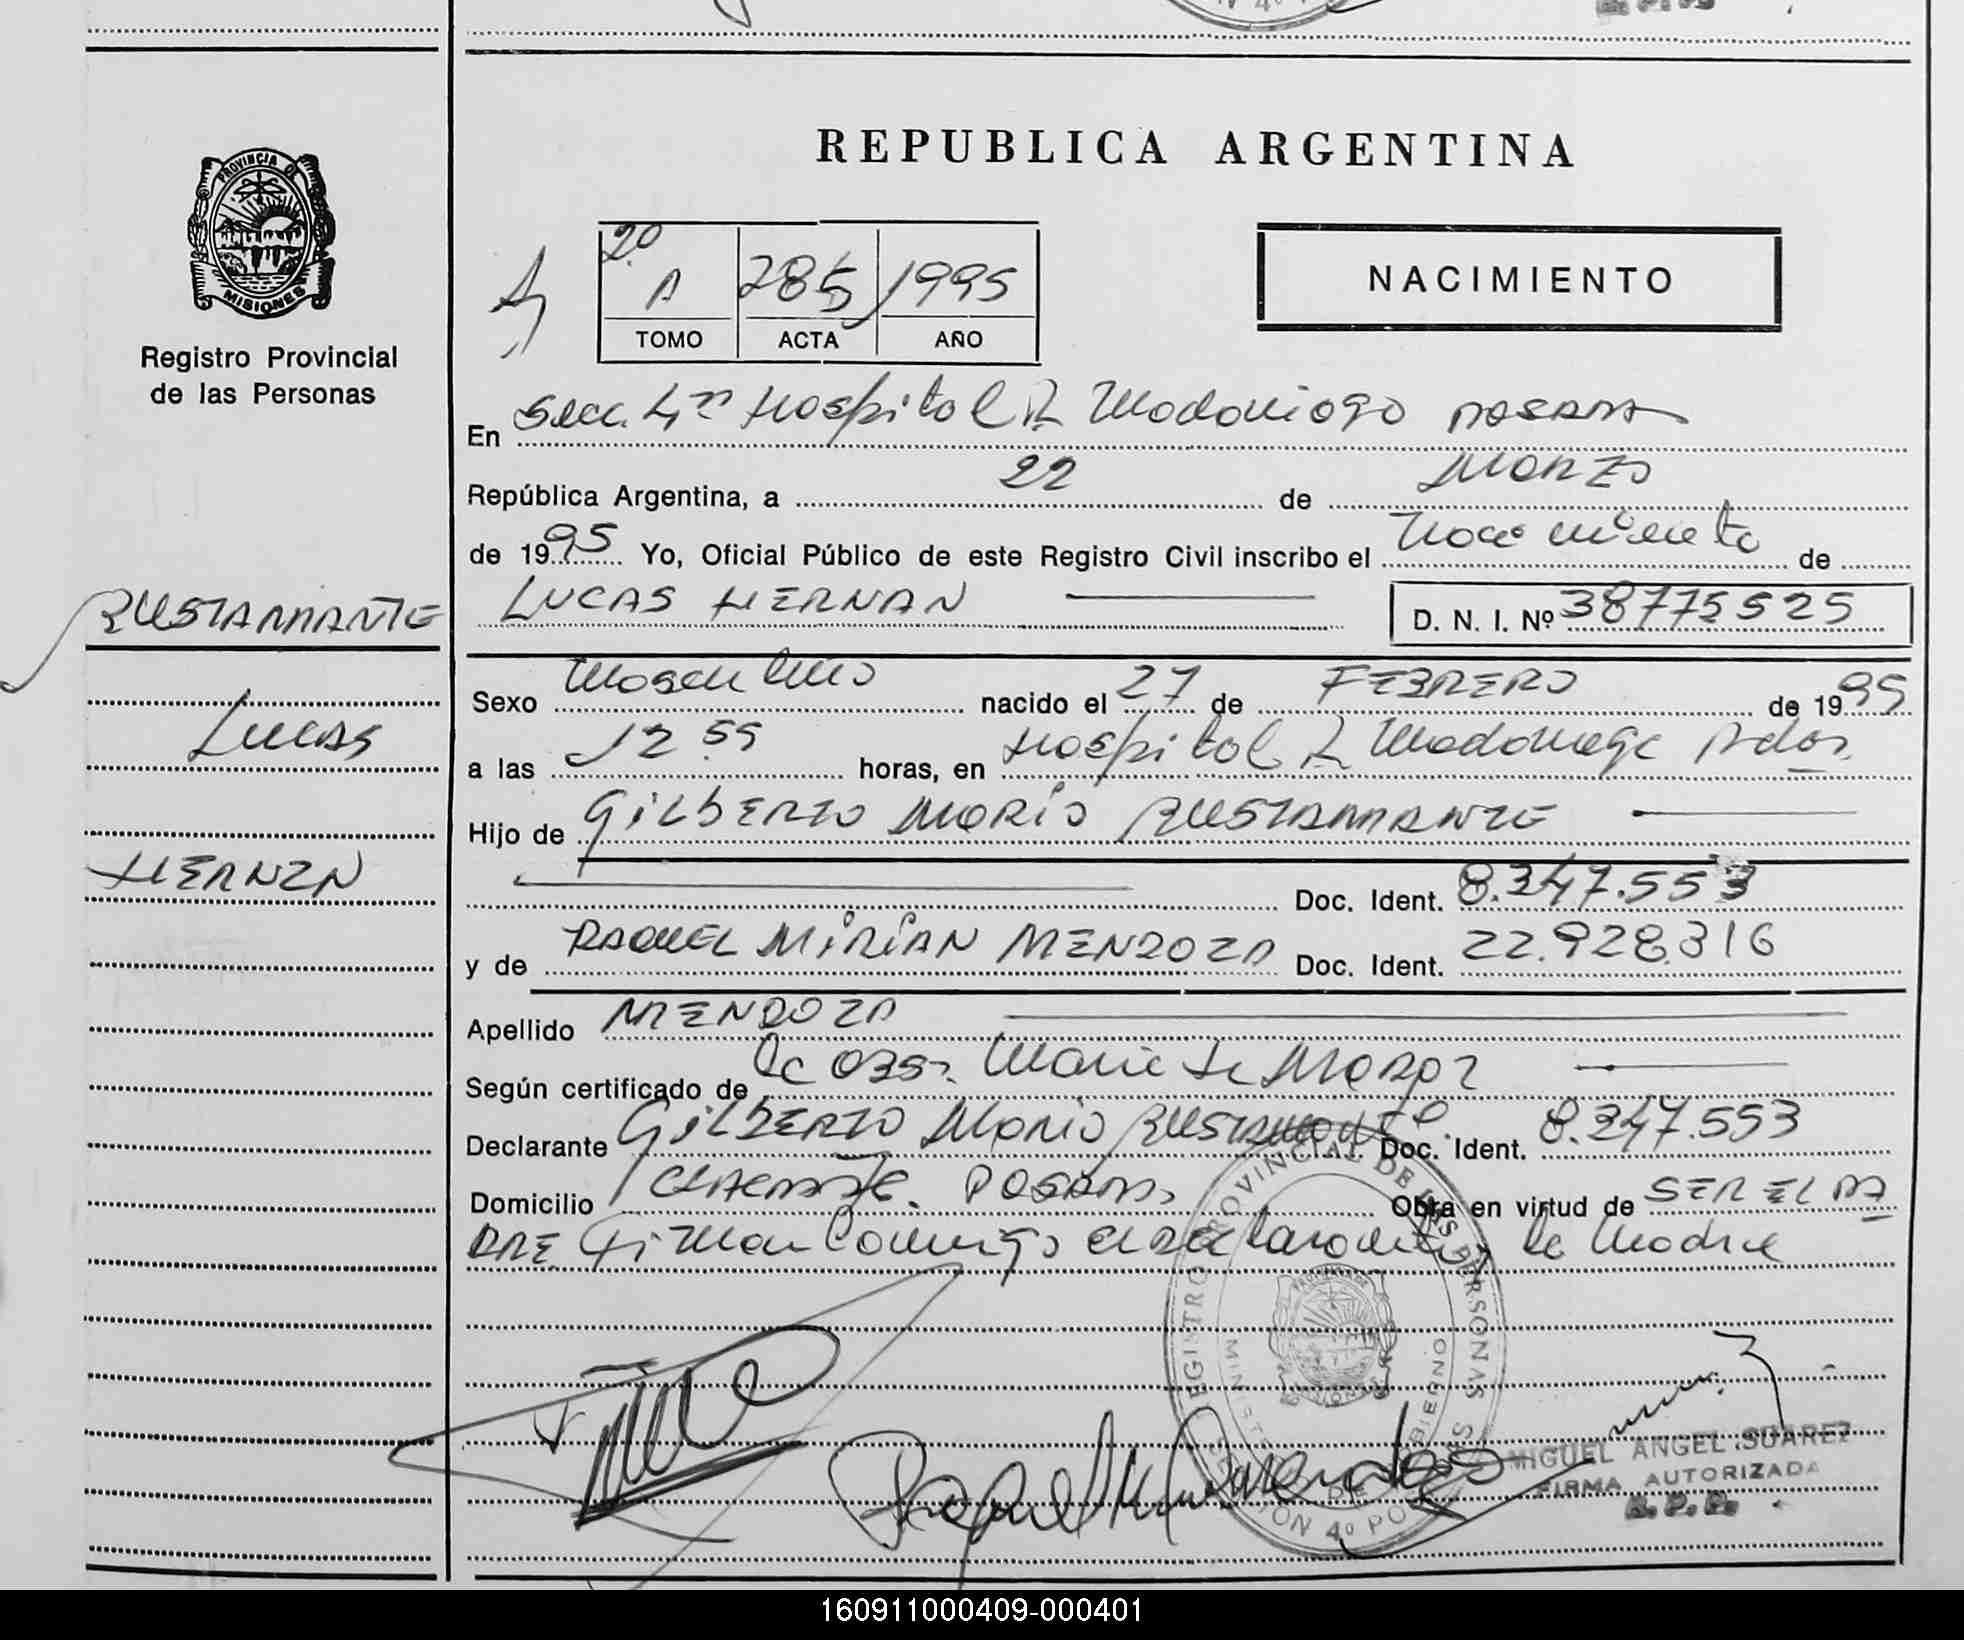 PROVINCIA DE
MISIONES
Registro Provincial
de las Personas
REPUBLICA ARGENTINA
2º
A 285 1995
TOMO ACTA AÑO
NACIMIENTO
En Secc. 4ta Hospital R Madariaga POSADAS
República Argentina, a 22 de MARZO
de 1995 Yo, Oficial Público de este Registro Civil inscribo el Nacimiento de
BUSTAMANTE
LUCAS HERNAN D. N. I. Nº 38775525
Sexo Masculino nacido el 27 de FEBRERO de 1995
LUCAS
a las 12 55 horas, en Hospital R Madariaga Pdas.
Hijo de GILBERTO MARIO BUSTAMANTE
HERNAN
Doc. Ident. 8.347.553
y de RAQUEL MIRIAN MENDOZA Doc. Ident. 22.928.316
Apellido MENDOZA
Según certificado de la Obst. Maria de
Declarante GILBERTO MARIO BUSTAMANTE Doc. Ident. 8.347.553
Domicilio POSADAS Obra en virtud de SER EL PA
DRE Firman Conmigo el declarante y la Madre
REGISTRO PROVINCIAL DE LAS PERSONAS
MINISTERIO DE GOBIERNO
SECCION 4º POSADAS
MIGUEL ANGEL SUAREZ
FIRMA AUTORIZADA
R. P. P.
160911000409-000401